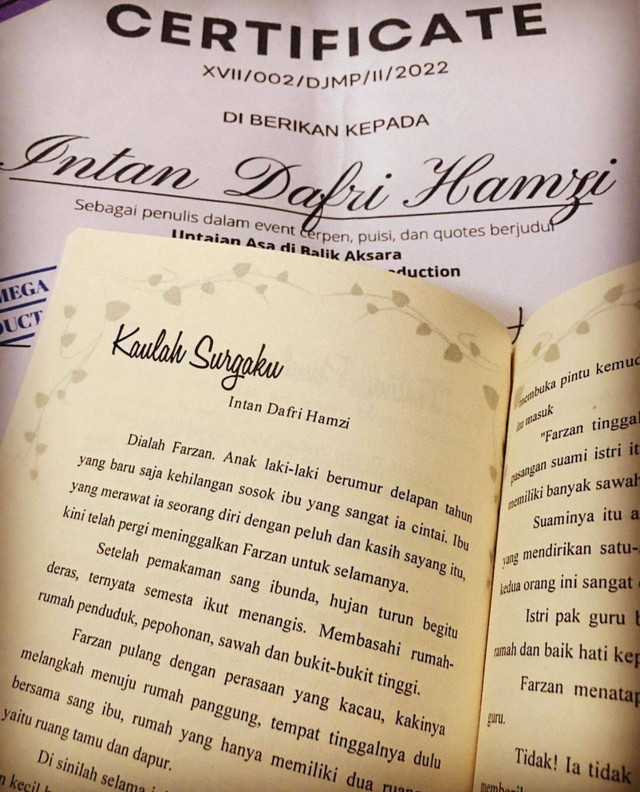 CERTIFICATE
XVII/002/DJMP/II/2022
DI BERIKAN KEPADA
Intan Dafri Hamzi
Sebagai penulis dalam event cerpen, puisi, dan quotes berjudul
Untaian Asa di Balik Aksara
Kaulah Surgaku
Intan Dafri Hamzi
Dialah Farzan. Anak laki-laki berumur delapan tahun
yang baru saja kehilangan sosok ibu yang sangat ia cintai. Ibu
yang merawat ia seorang diri dengan peluh dan kasih sayang itu,
kini telah pergi meninggalkan Farzan untuk selamanya.
Setelah pemakaman sang ibunda, hujan turun begitu
deras, ternyata semesta ikut menangis. Membasahi rumah-
rumah penduduk, pepohonan, sawah dan bukit-bukit tinggi.
Farzan pulang dengan perasaan yang kacau, kakinya
melangkah menuju rumah panggung, tempat tinggalnya dulu
bersama sang ibu, rumah yang hanya memiliki dua
yaitu ruang tamu dan dapur.
Di sinilah selama
kecil
membuka pintu
masuk
"Farzan
pasangan suami istri
memiliki banyak sawah
Suaminya itu
yang mendirikan
kedua orang ini sangat
Istri pak guru
ramah dan baik hati
Farzan
guru.
Tidak! Ia tidak